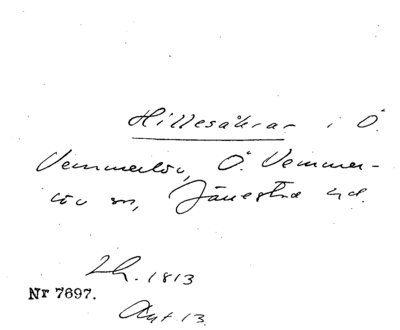 Hillesåkrar i Ö.
Vemmerlöv, Ö. Vemmer-
löv sn, Järrestad hd.
Lh. 1813
Nr 7697.
Akt 13.